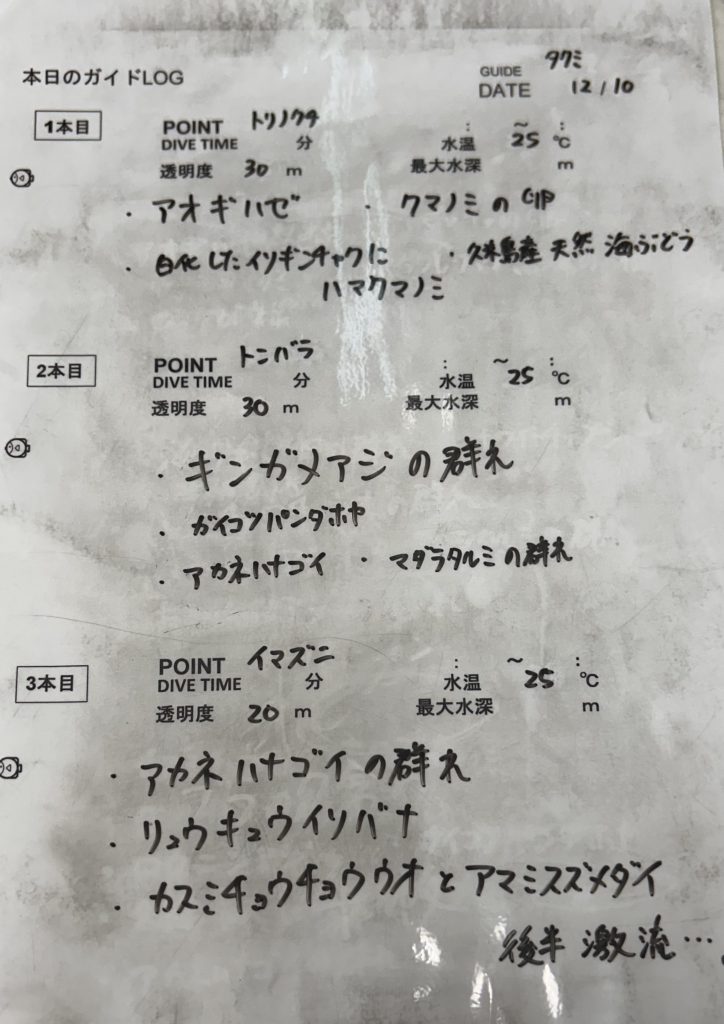 本日のガイドLOG
GUIDE タクミ
DATE 12/10
1本目
POINT トリノクチ
DIVE TIME 分
: ~ :
水温 25 ℃
透明度 30 m
最大水深 m
・アオギハゼ ・クマノミの
・白化したイソギンチャクに
ハマクマノミ
・久米島産 天然 海ぶどう
2本目
POINT トンバラ
DIVE TIME 分
: ~ :
水温 25 ℃
透明度 30 m
最大水深 m
・ギンガメアジの群れ
・ガイコツパンダホヤ
・アカネハナゴイ ・マダラタルミの群れ
3本目
POINT イマズニ
DIVE TIME 分
: ~ :
水温 25 ℃
透明度 20 m
最大水深 m
・アカネハナゴイの群れ
・リュウキュウイソバナ
・カスミチョウチョウウオとアマミスズメダイ
後半 激流…。